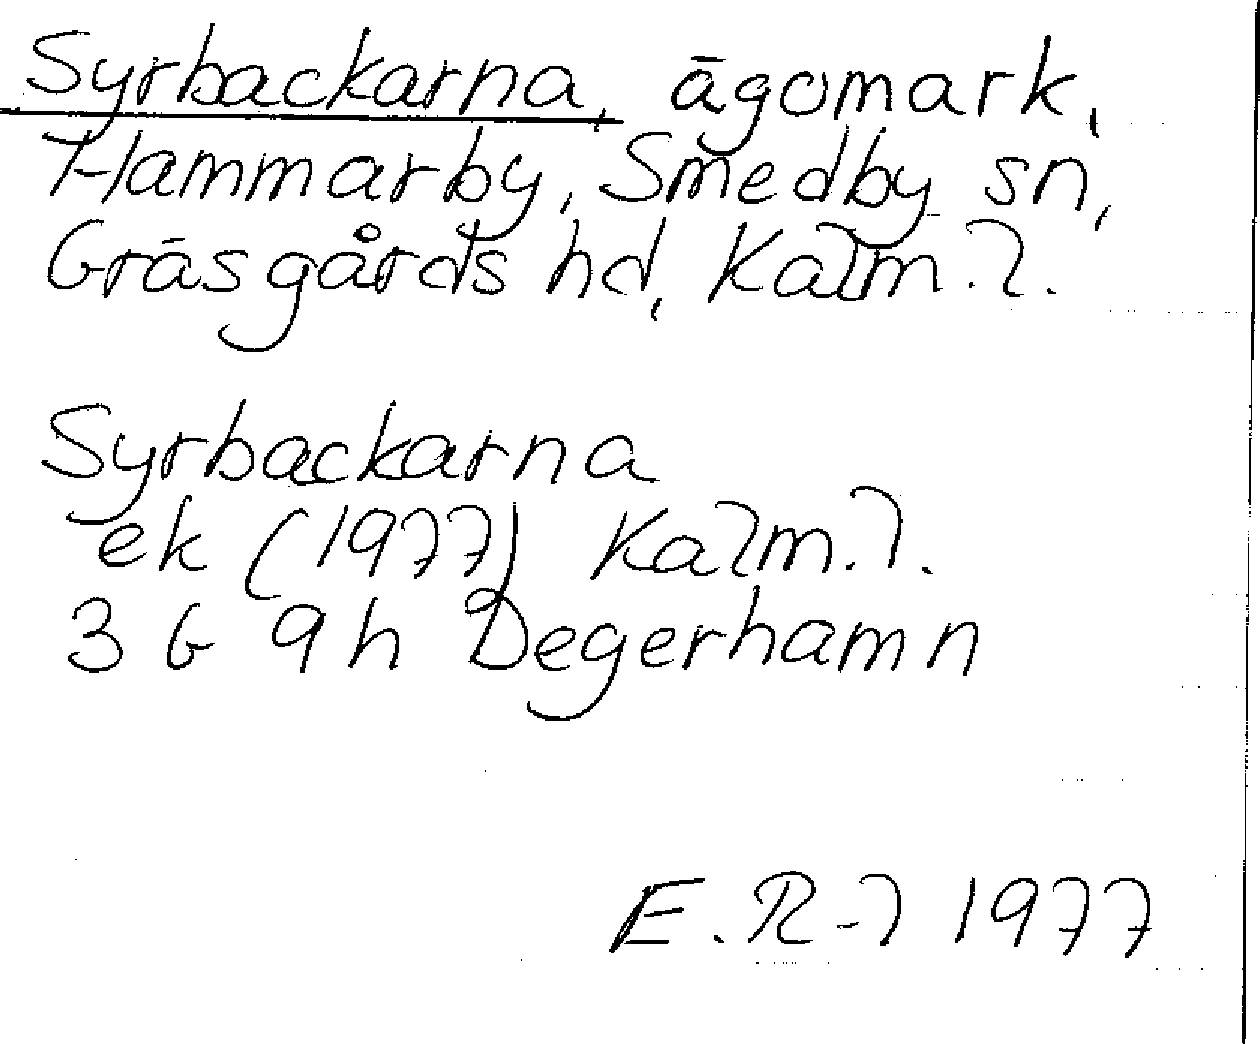 Syrbackarna, ägomark,
Hammarby, Smedby sn,
Gräsgårds hd, Kalm. l.
Syrbackarna
ek (1977) Kalm. l.
3 G 9 h Degerhamn
E. R-l 1977